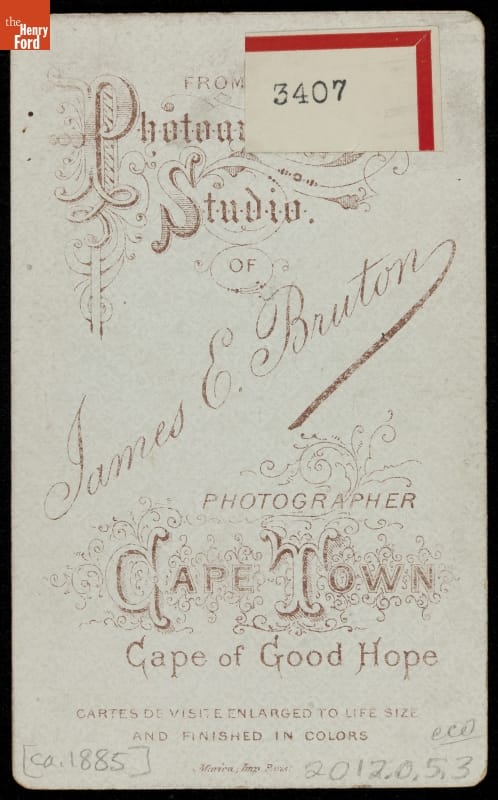 the
Henry
Ford
3407
FROM
Photogr
Studio.
OF
James E. Bruton
PHOTOGRAPHER
CAPE TOWN
Cape of Good Hope
CARTES DE VISITE ENLARGED TO LIFE SIZE
AND FINISHED IN COLORS
eco
[ca. 1885]
Imp. Paris
2012.0.5.3